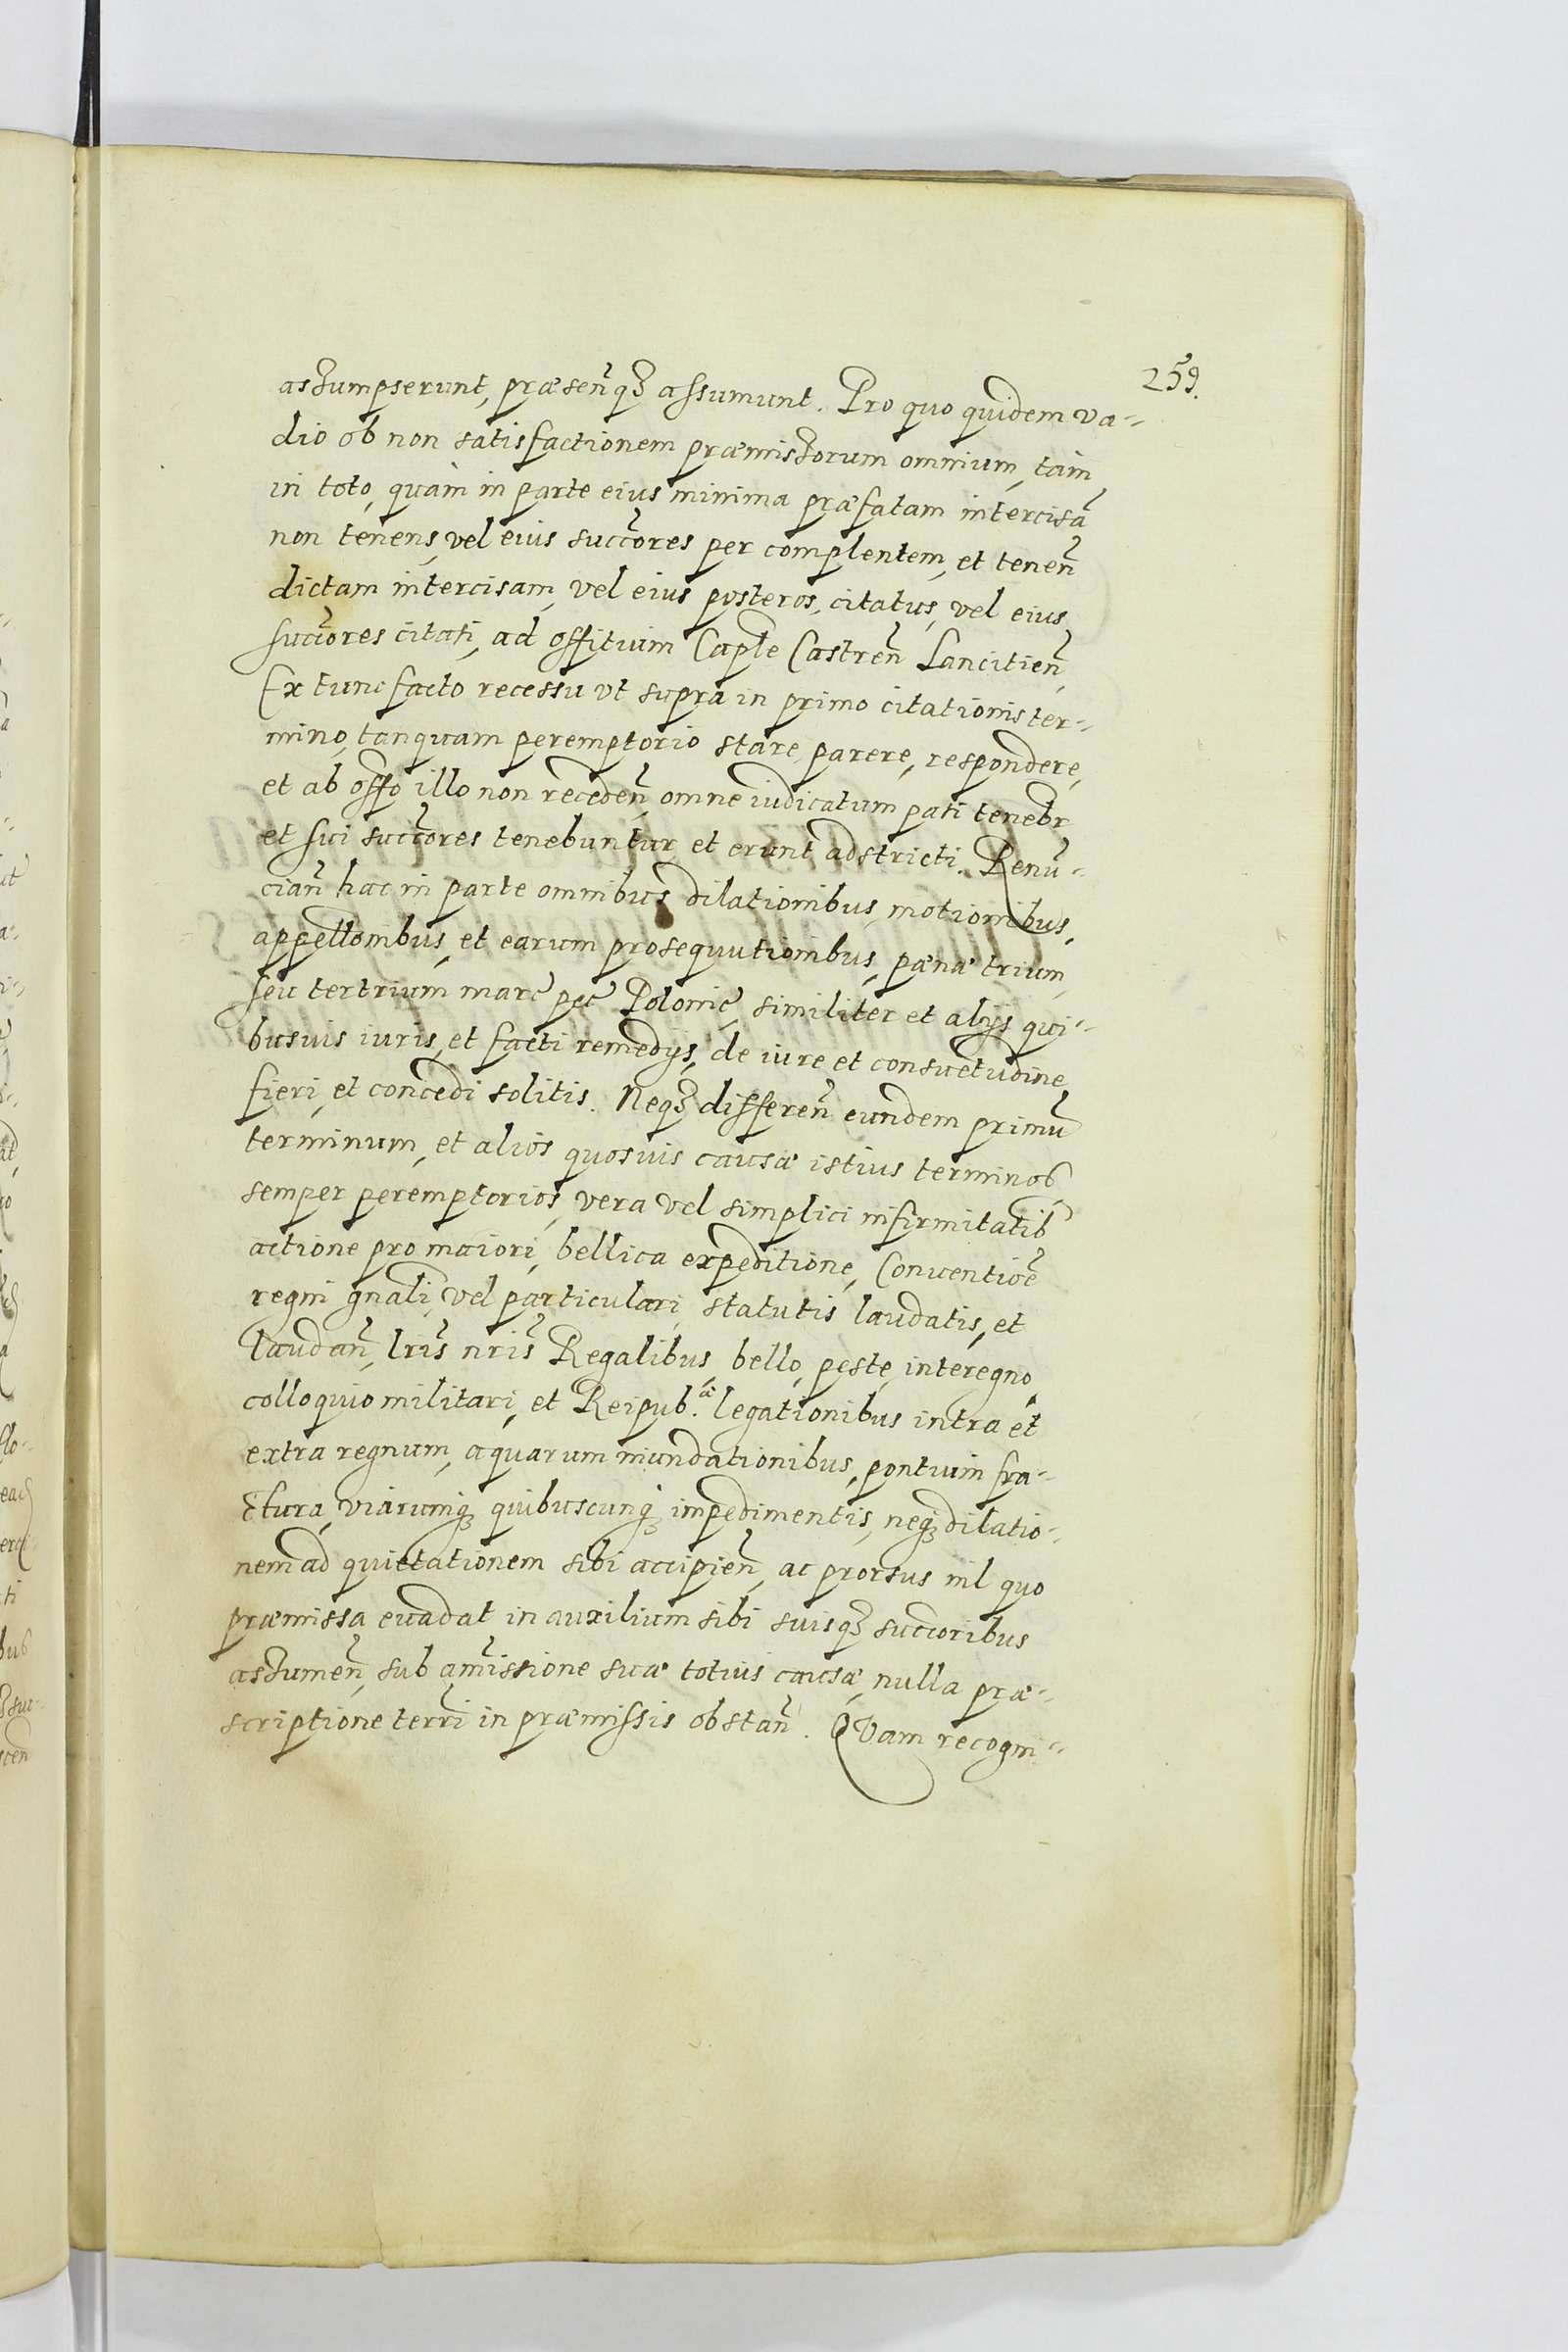 259.
assumpserunt, præsen̄q₃ assumunt. Pro quo quidem va-
dio ob non satisfactionem præmissorum omnium, tam
in toto, quàm in parte eius minima præfatam intercisā
non tenens, vel eius succ̄ores per complentem, et tenen̄
dictam intercisam, vel eius posteros, citatus, vel eius
succ̄ores citati, ad offitium Caple Castren̄ Lancitien̄,
Ex tunc facto recessu vt supra in primo citationis ter-
mino, tanquam peremptorio stare, parere, respondere,
et ab offo illo non receden̄ omne iudicatum pati tenebr
et sui succ̄ores tenebuntur, et erunt adstricti. Renū-
cian̄ hac in parte omnibus dilationibus, motionibus,
appellonibus, et earum prosequutionibus, pænæ trium,
seu ter trium marc̄ pec̄ Polonic̄, similiter et alijs qui-
busuis iuris, et facti remedijs, de iure et consuetudine
fieri, et concedi solitis. Neq₃ differen̄ eundem primū
terminum, et alios quosuis causæ istius terminos
semper peremptorios, vera vel simplici infirmitatib
actione pro maiori, bellica expeditione, Conuentioē
regni gnali, vel particulari, statutis laudatis, et
laudan̄, lris̄ nris̄ Regalibus bello, peste, interegno,
colloquio militari, et Reipub.æ legationibus intra et
extra regnum, aquarum inundationibus, pontium fra-
ctura, viarumq₃ quibuscunq₃ impedimentis, neq₃ dilatio-
nem ad quietationem sibi accipien̄, ac prorsus nil quo
præmissa euadat in auxilium sibi suisq₃ succ̄oribus
assumen̄, sub am̄issione suæ totius causæ, nulla præ-
scriptione terri in præmissis obstan̄. Quam recogni-